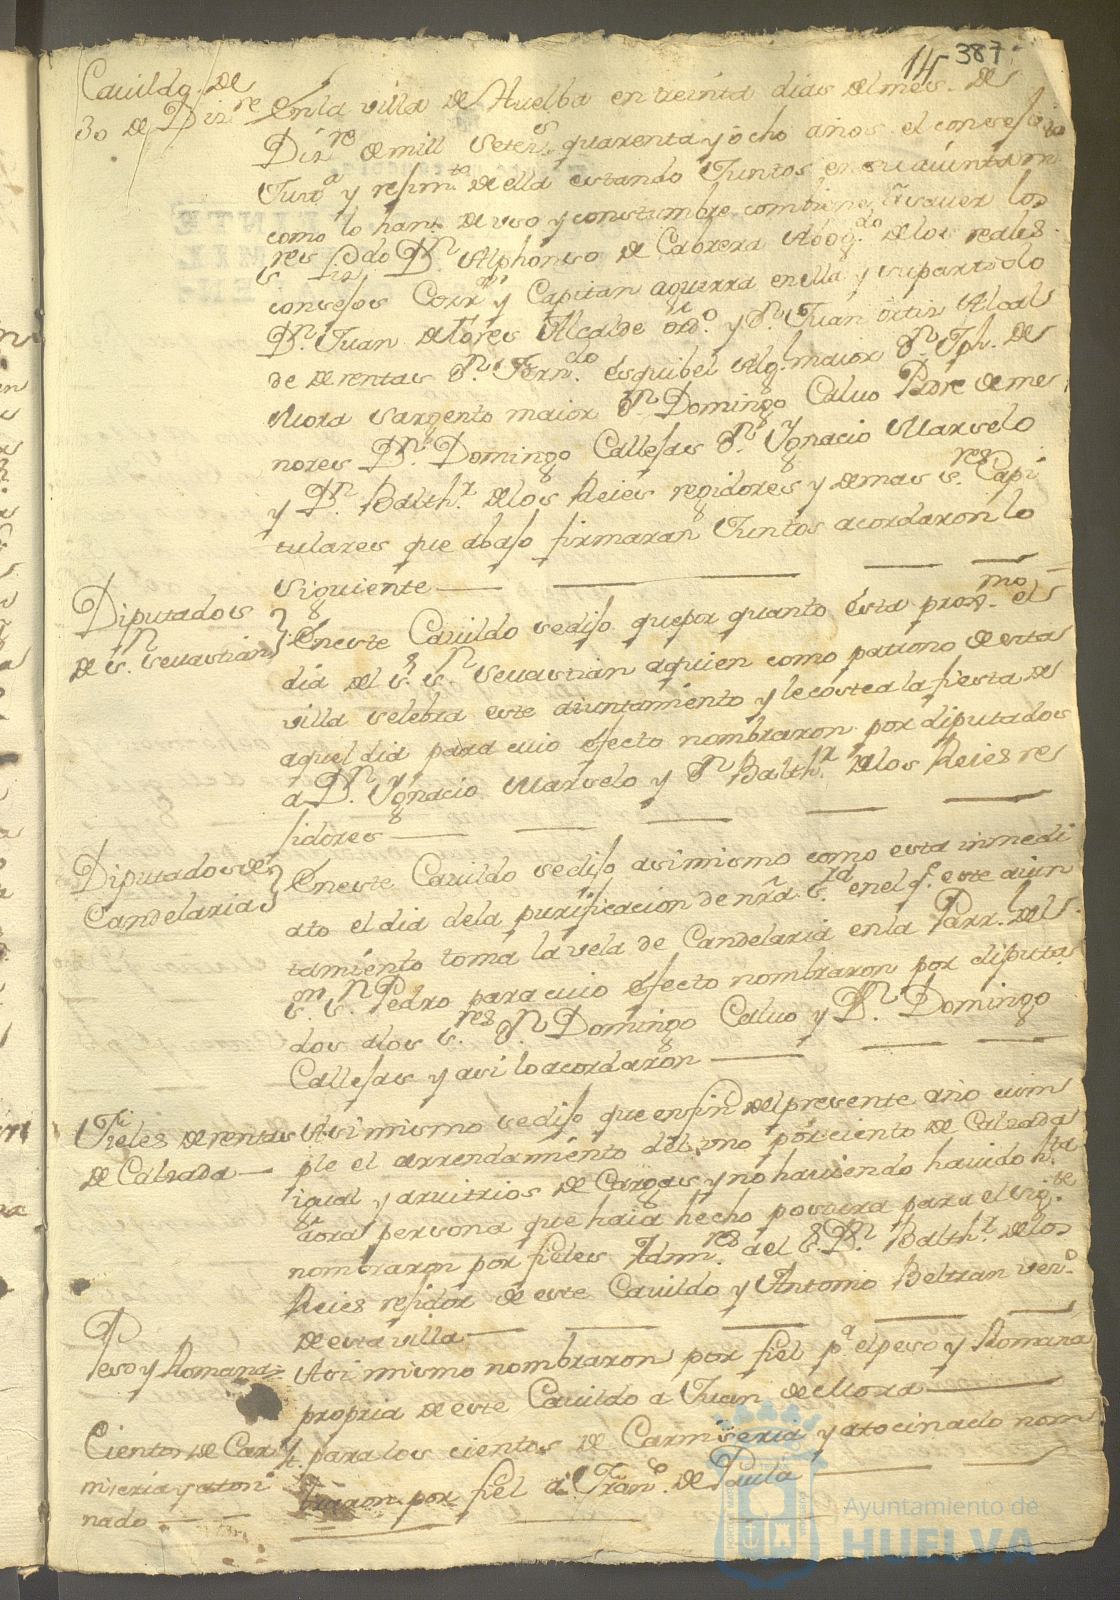 14 387
Cauildo de
30 de Dizre
Enla villa de Huelba en treinta dias del mes de
Dizre de mill setezs quarenta y ocho años el consejo
Justa y resimto de ella estando Juntos en su aiuntamto
como lo han de vso y constumbre combiene a sauer los
sres Lizdo Dn Alphonso de Cabrera Abogdo de los reales
consejos Corror y Capitan aguerra enella y supartido
Dn Juan de Flores Alcalde ordo y Dn Juan ortiz Alcal
de de rentas Dn Ferndo esquibel Algl maior Dn Jph de
Mora sargento maior Dn Domingo Caluo Padre de me
nores Dn Domingo Callejas Dn Ygnacio Marselo
y Dn Balthr delos Reies regidores y demas sres Capi
tulares que abajo firmaran Juntos acordaron lo
siguiente
Diputados
de Sn Seuastian
Eneste Cauildo sedijo quepor quanto esta proxmo el
dia del Sr Sn Seuastian aquien como patrono de esta
villa selebra este aiuntamiento y le costea la fiesta de
aquel dia para cuio efecto nombraron por diputados
a Dn Ygnacio Marselo y Dn Balthr delos Reies re
jidores
Diputados de
Candelaria
Eneste Cauildo sedijo asimismo como esta inmedi
ato el dia dela purificacion de nra Sra en el q. este aiun
tamiento toma la vela de Candelaria enla Parrl del
Sr Sn Pedro para cuio efecto nombraron por diputa
dos alos sres Dn Domingo Caluo y Dn Domingo
Callejas y asi lo acordaron
Fieles de rentas
de Calsada
Asimismo sedijo que enfin del presente año cum
ple el arrendamiento del vno por ciento de Calsada
igual y aruitrios de Cargas y no hauiendo hauido hta
aora persona que haia hecho postura para el sigte
nombraron por fieles Admres al Sr Dn Balthr de los
Reies residor de este Cauildo y Antonio Beltran veno
de esta villa
Peso y Romana
Asi mismo nombraron por fiel pa el peso y Romana
propria de este Cauildo a Juan de Mora
Cientos de Car
niseria y atosi
nado
Y para los cientos de Carniseria y atocinado nom
braron por fiel a Frano de Paula
Ayuntamiento de
HUELVA